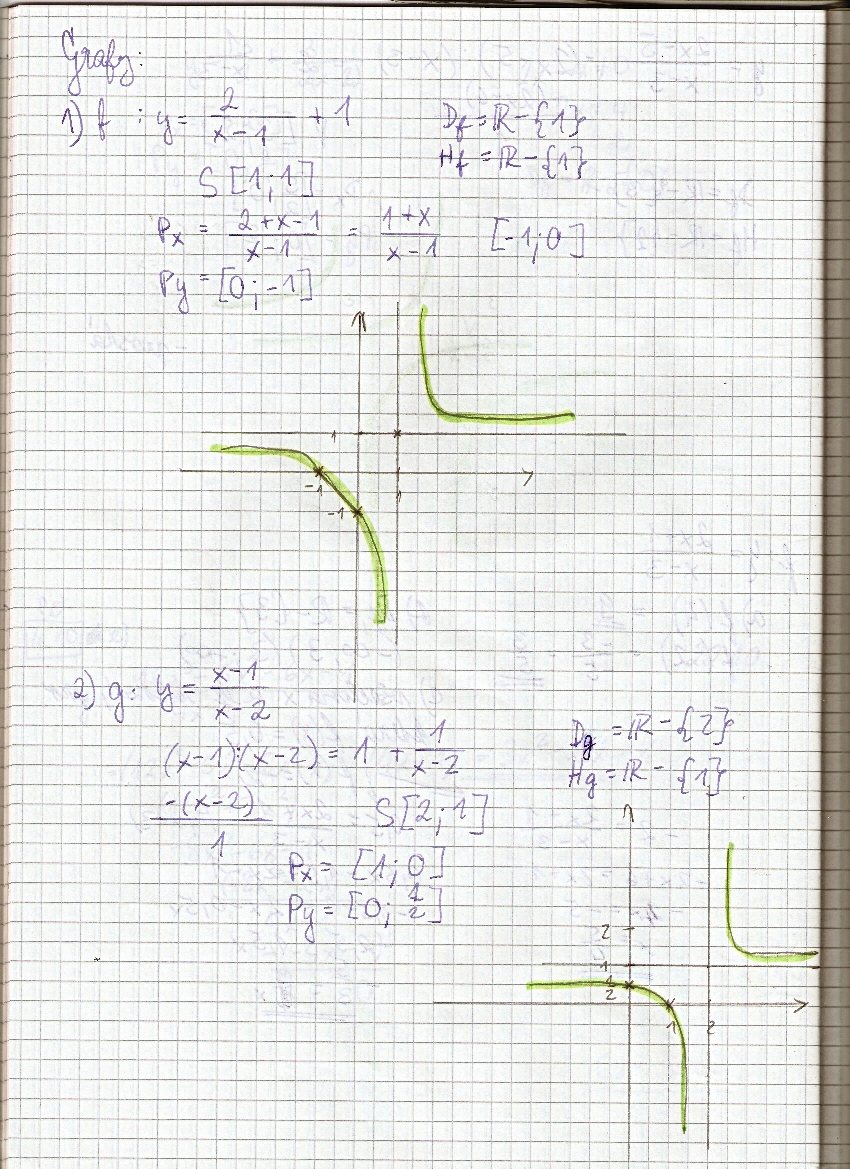 Grafy:
1) f : y = 2/(x-1) + 1
Df = ℝ - {1}
Hf = ℝ - {1}
S [1; 1]
Px = (2+x-1)/(x-1) = (1+x)/(x-1) [-1; 0]
Py = [0; -1]
1
-1
1
-1
2) g: y = (x-1)/(x-2)
(x-1):(x-2) = 1 + 1/(x-2)
Dg = ℝ - {2}
Hg = ℝ - {1}
-(x-2)
1
S[2; 1]
Px = [1; 0]
Py = [0; 1/2]
2
1
1/2
1 2